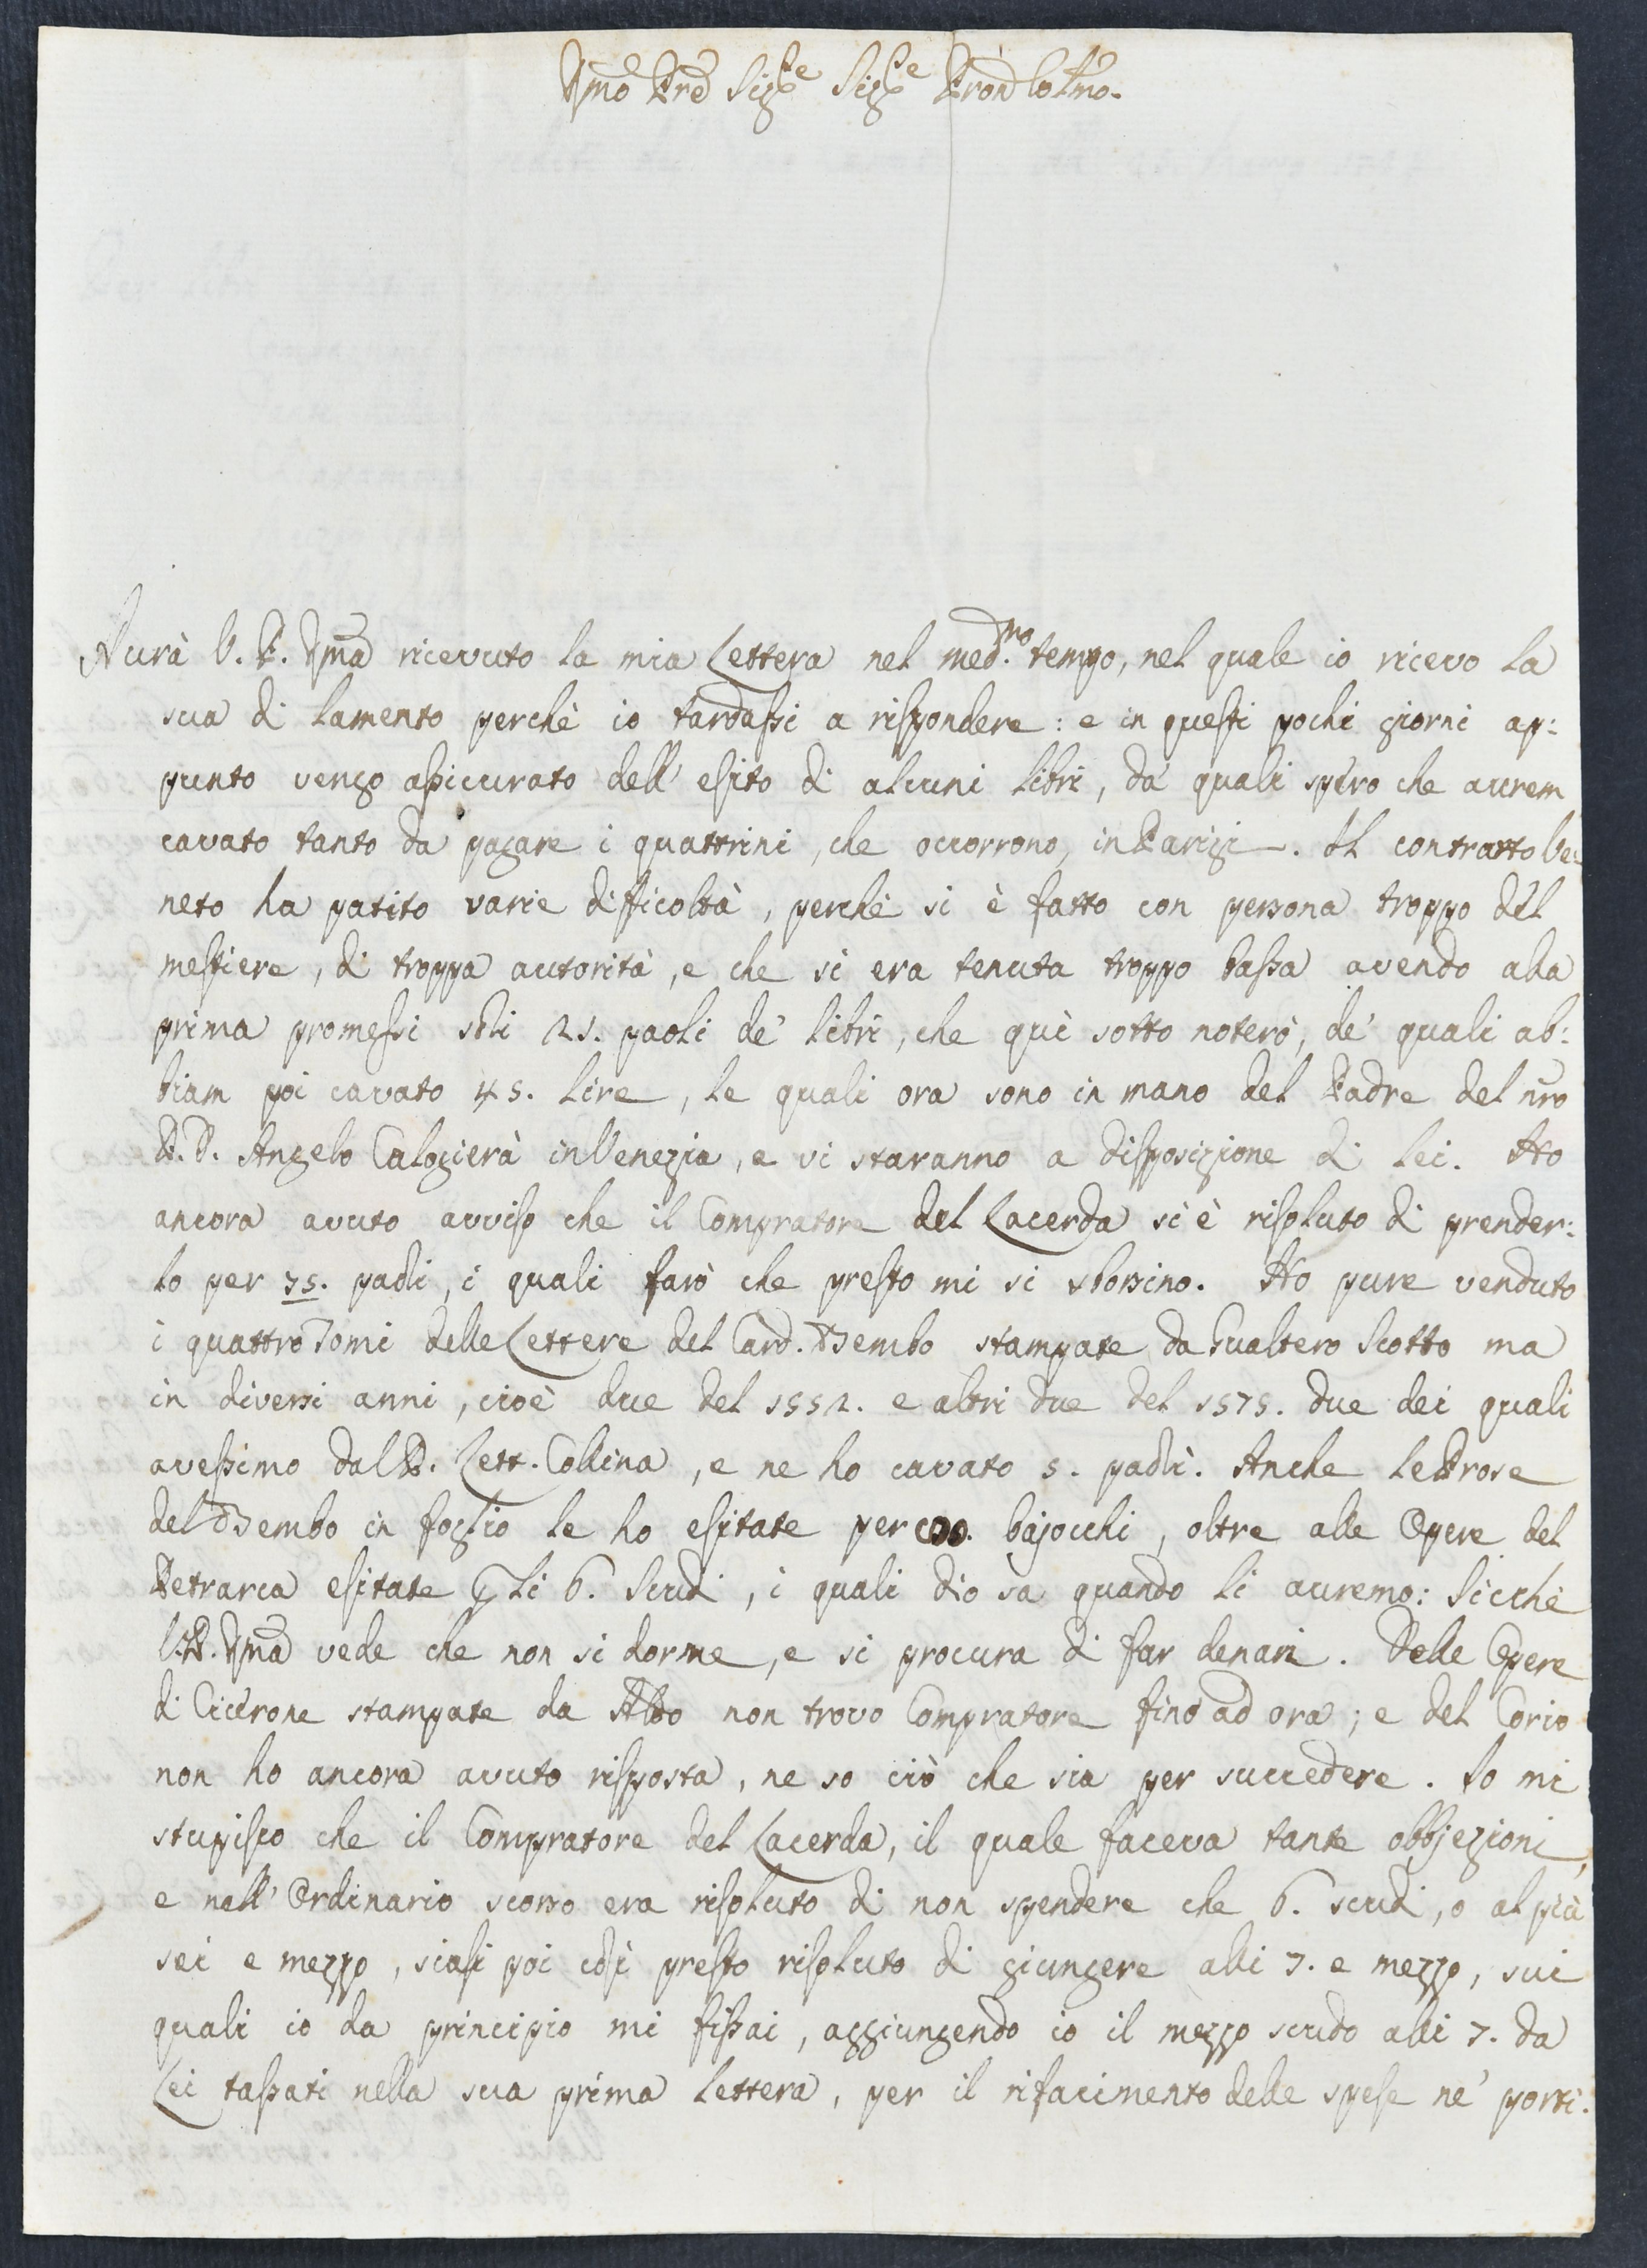 Illmo Pre Sigre Sigre Pron Colmo.
Aurà V. P. Illma ricevuto la mia Lettera nel med.mo tempo, nel quale io ricevo la
sua di lamento perchè io tardassi a rispondere: e in questi pochi giorni ap:
punto vengo assicurato dell' esito di alcuni libri, da' quali spero che aurem
cavato tanto da pagare i quattrini, che occorrono, in Parigi. Il contratto Ve:
neto ha patito varie difficoltà, perchè si è fatto con persona troppo del
mestiere, di troppa autorità, e che si era tenuta troppo bassa avendo alla
prima promessi soli 25. paoli de' libri, che quì sotto noterò, de' quali ab:
biam poi cavato 45. lire, le quali ora sono in mano del Padre del nro
P. D. Angelo Calogierà in Venezia, e vi staranno a disposizione di lei. Ho
ancora avuto avviso che il Compratore del Lacerda si è risoluto di prender:
lo per 75. paoli, i quali farò che presto mi si sborsino. Ho pure venduto
i quattro Tomi delle Lettere del Card. Bembo stampate da Gualtero Scotto ma
in diversi anni, cioè due del 1552. e altri due del 1575. due dei quali
avessimo dal P. Lett. Collina, e ne ho cavato 5. paoli. Anche le Prose
del Bembo in foglio le ho esitate per bajocchi, oltre alle Opere del
Petrarca esitate p li 6. Scudi, i quali Dio sa quando li auremo: Sicchè
V. P. Illma vede che non si dorme, e si procura di far denari. Delle Opere
di Cicerone stampate da Aldo non trovo Compratore fino ad ora; e del Corio
non ho ancora avuto risposta, ne so ciò che sia per succedere. Io mi
stupisco che il Compratore del Lacerda, il quale faceva tante obbjezioni,
e nell' Ordinario scorso era risoluto di non spendere che 6. scudi, o al più
sei e mezzo, siasi poi così presto risoluto di giungere alli 7. e mezzo, sui
quali io da principio mi fissai, aggiungendo io il mezzo scudo alli 7. da
Lei tassati nella sua prima lettera, per il rifacimento delle spese ne' porti.